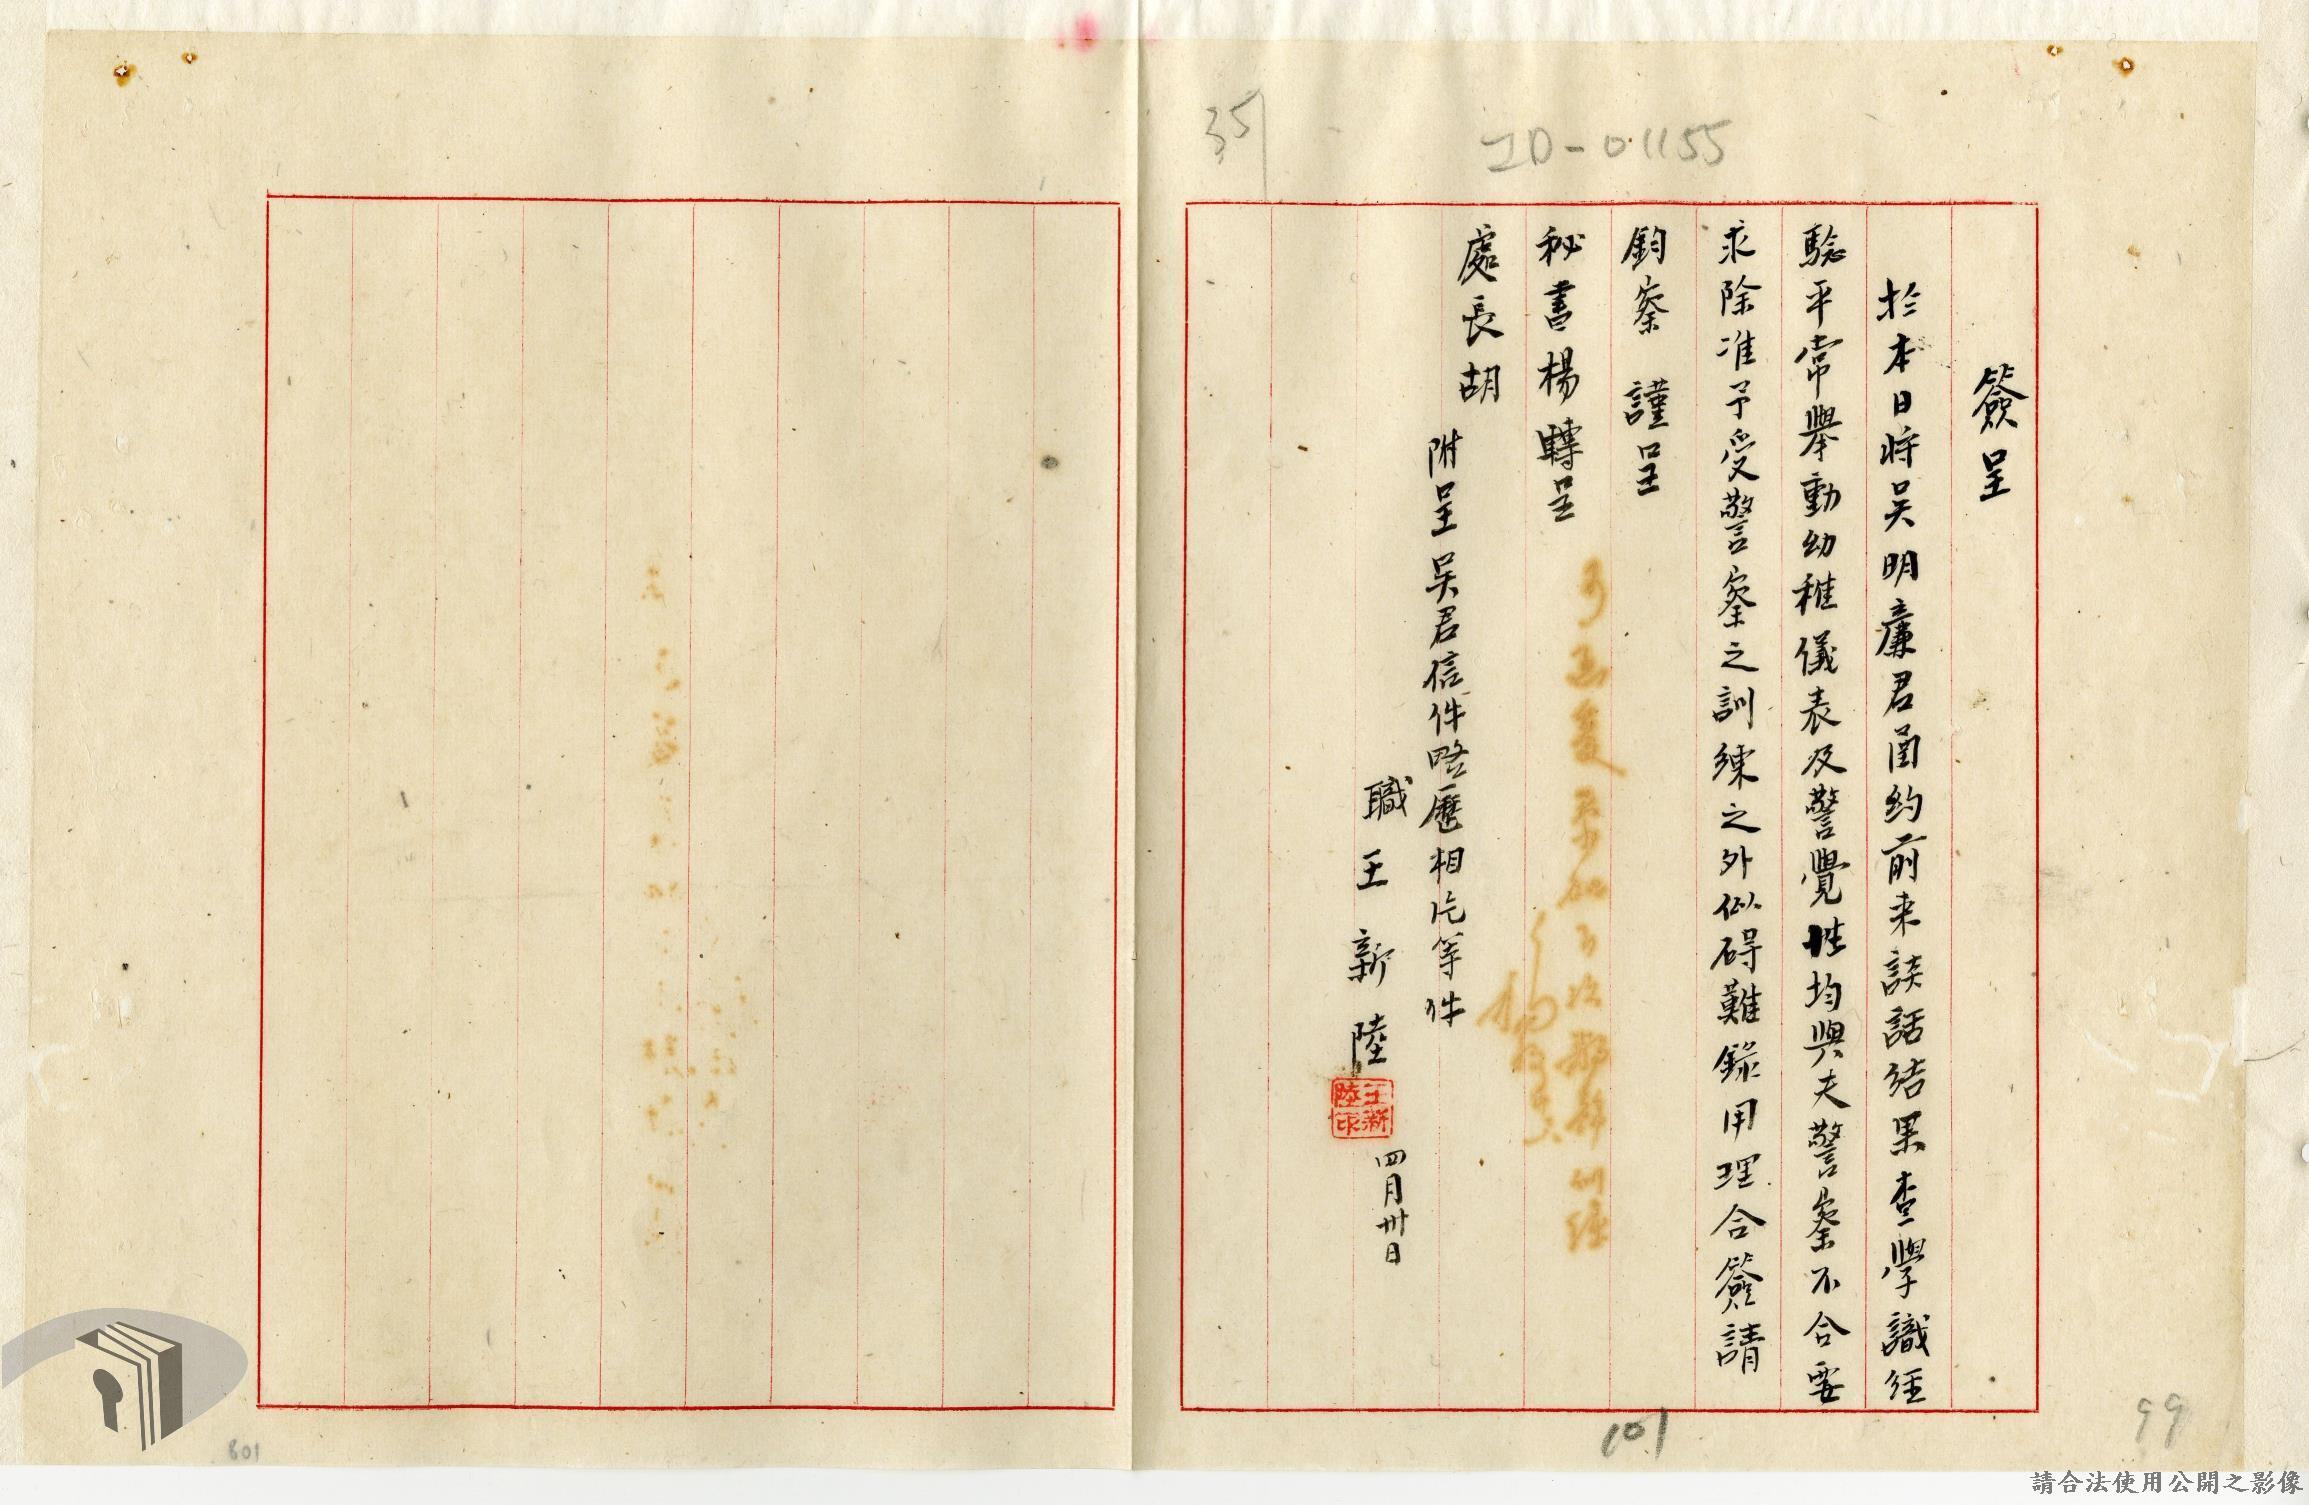 35
JD-01155
簽呈
於本日将吴明廉君函约前来談話结果查學識经
驗平常舉動幼稚儀表及警覺性均與夫警察不合要
求除准予受警察之訓練之外似碍難錄用理合簽請
鈞察 謹呈
秘書楊轉呈
處長胡
附呈吴君信件略歷相片等件
職王新陸
王新陸印
四月卅日
101
99
801
請合法使用公開之影像